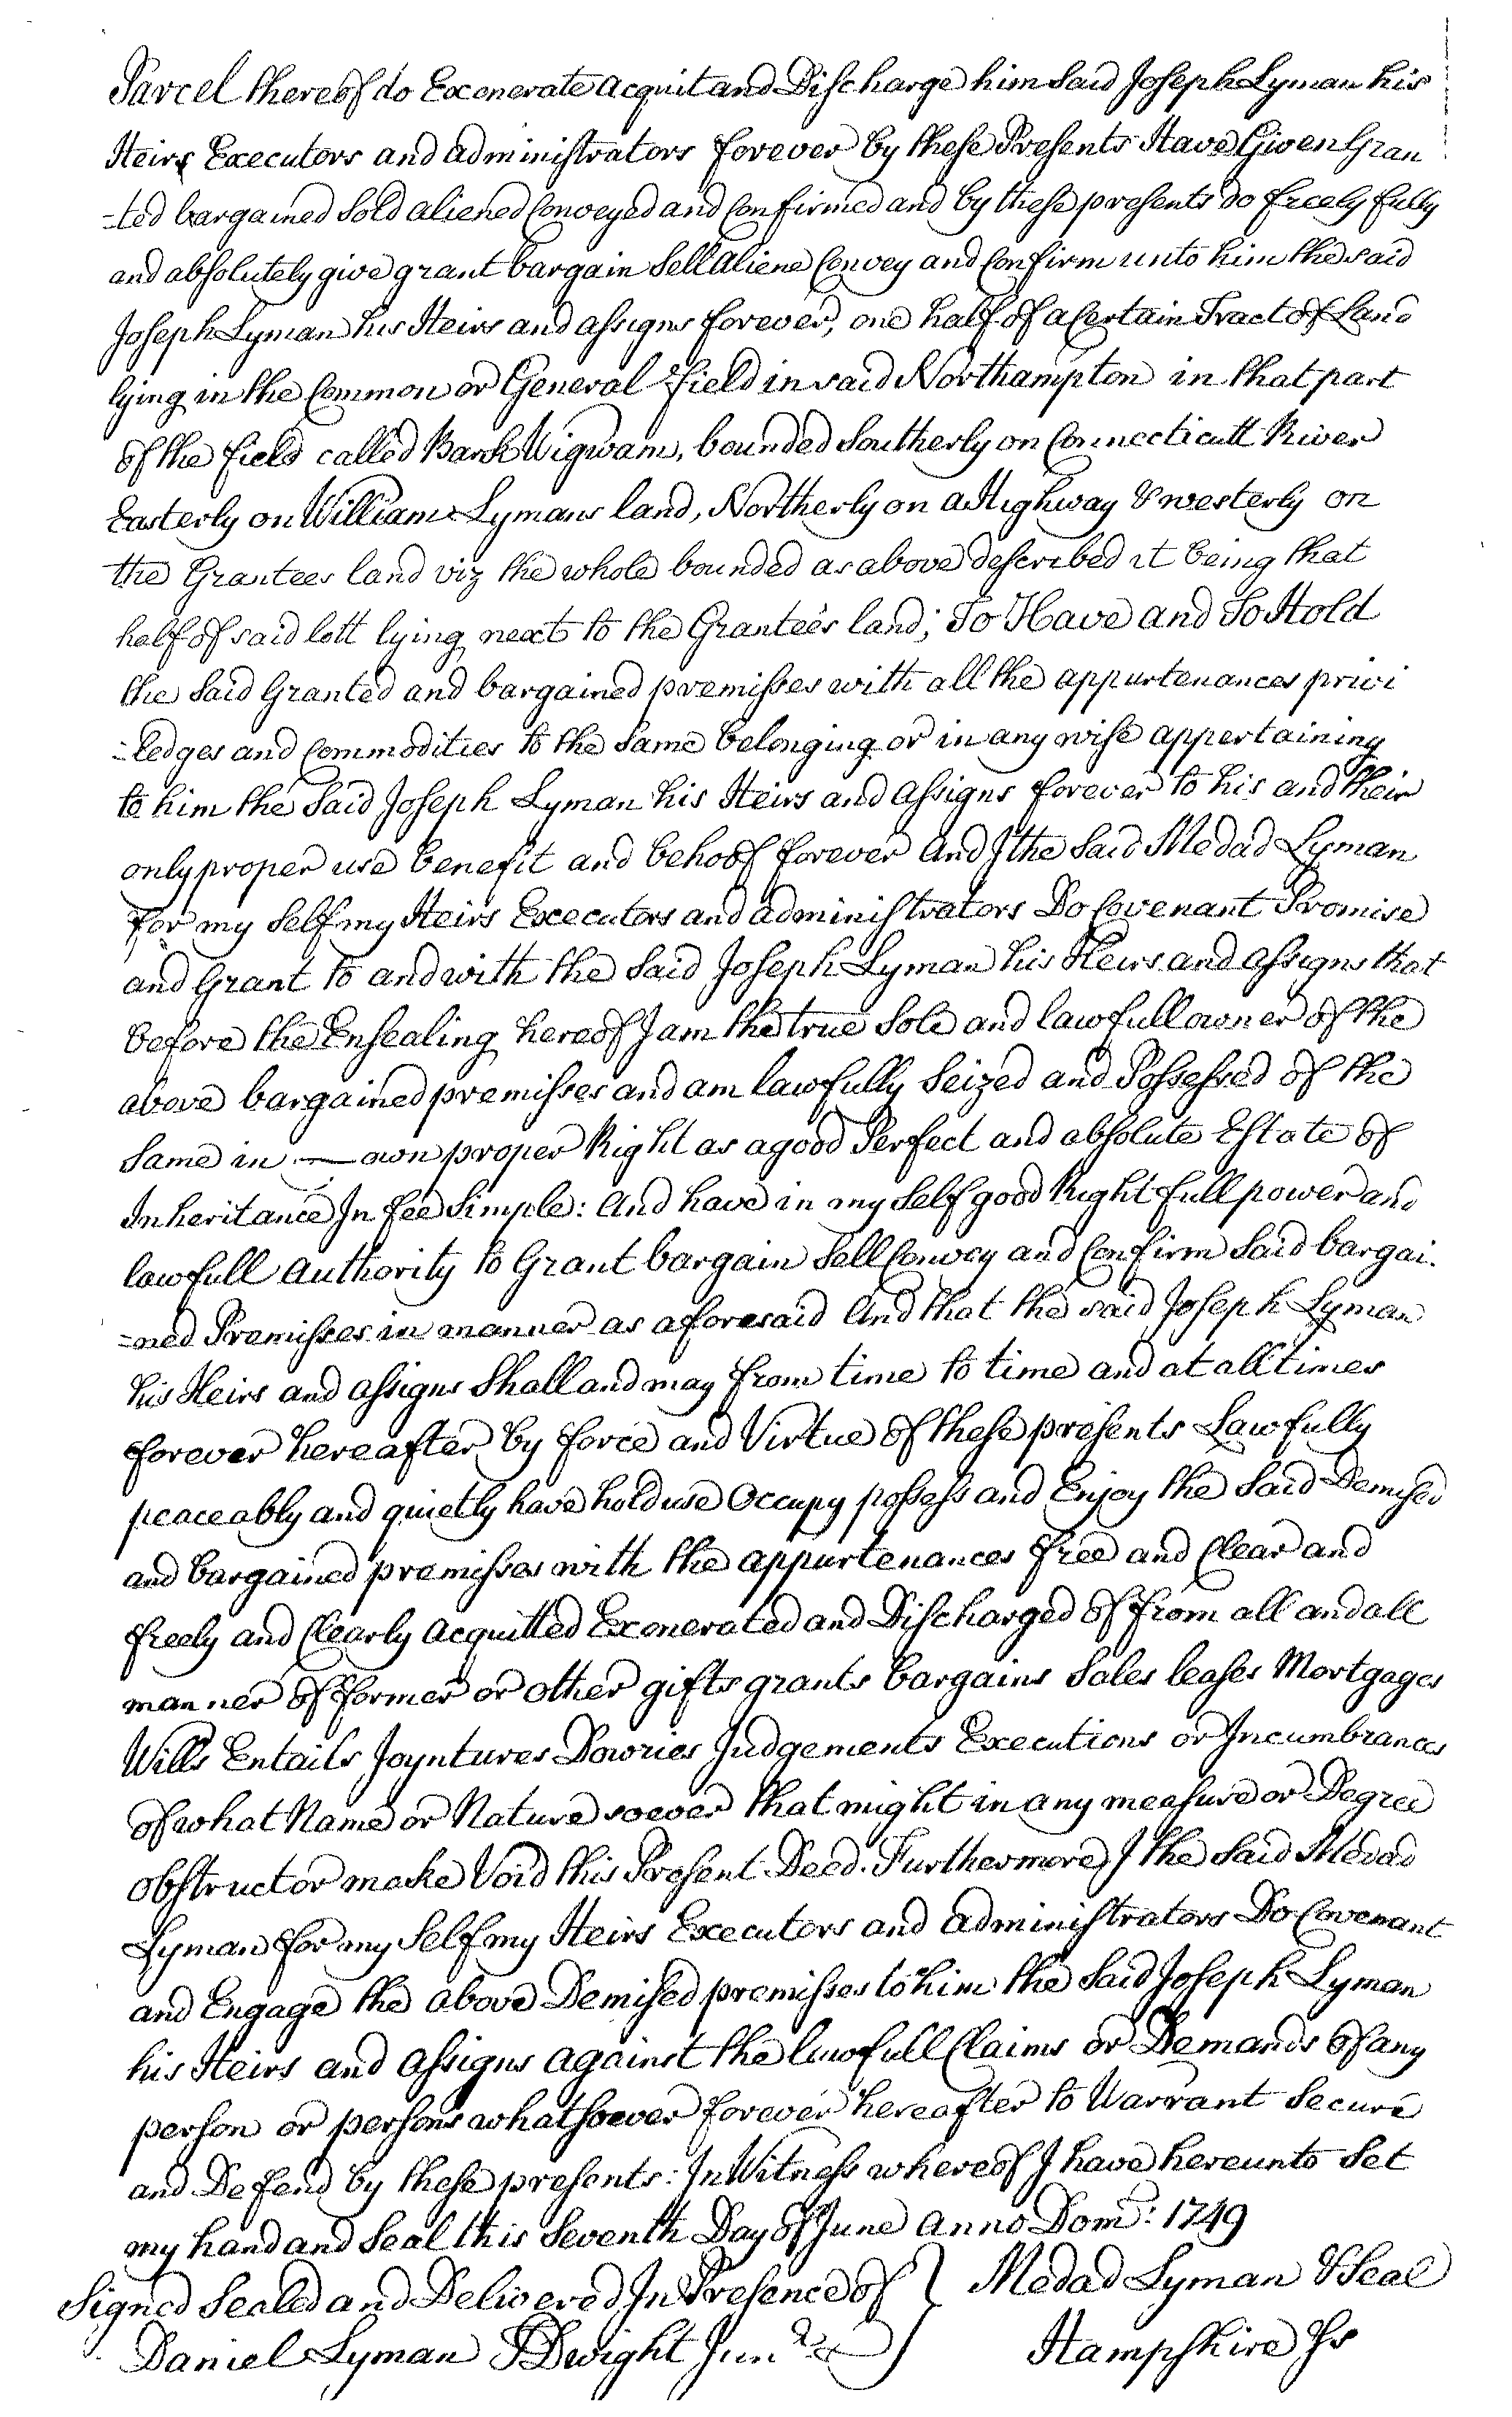 Parcel thereof do Exonerate acquit and Discharge him said Joseph Lyman his
Heirs Executors and administrators forever by these Presents Have Given Gran
=ted bargained Sold aliened Conveyed and Confirmed and by these presents do freely fully
and absolutely give grant bargain Sell Aliene Convey and Confirm unto him the said
Joseph Lyman his Heirs and assigns forever, one half of a Certain Tract of Land
lying in the Common or General Field in said Northampton in that part
of the field called Bark Wigwam, bounded Southerly on Connecticutt River
Easterly on William Lymans land, Northerly on a Highway & westerly on
the Grantees land viz the whole bounded as above described it being that
half of said lott lying next to the Grantees land; To Have and To Hold
the Said Granted and bargained premisses with all the appurtenances privi
=ledges and Commodities to the Same belonging or in any wise appertaining
to him the Said Joseph Lyman his Heirs and assigns forever to his and their
only proper use benefit and behoof forever And I the Said Medad Lyman
for my Self my Heirs Executors and administrators Do Covenant Promise
and Grant to and with the Said Joseph Lyman his Heirs and assigns that
before the Ensealing hereof I am the true Sole and lawfull owner of the
above bargained premisses and am lawfully Seized and Possessed of the
Same in — own proper Right as a good Perfect and absolute Estate of
Inheritance In fee Simple: And have in my Self good Right full power and
lawfull Authority to Grant bargain Sell Convey and Confirm Said bargai.
=ned Premisses in manner as aforesaid And that the said Joseph Lyman
his Heirs and assigns Shall and may from time to time and at all times
forever hereafter by force and Virtue of these presents Lawfully
peaceably and quietly have hold use Occupy possess and Enjoy the Said Demised
and bargained premisses with the appurtenances free and Clear and
freely and Clearly acquitted Exonerated and Discharged of from all and all
manner of former or other gifts grants bargains Sales leases Mortgages
Wills Entails Joyntures Dowries Judgements Executions or Incumbrances
of what Name or Nature soever that might in any measure or Degree
obstruct or make Void this Present Deed. Furthermore I the Said Medad
Lyman for my Self my Heirs Executors and administrators Do Covenant
and Engage the above Demised premisses to him the Said Joseph Lyman
his Heirs and assigns against the lawfull Claims or Demands of any
person or persons whatsoever forever hereafter to Warrant Secure
and Defend by these presents: In Witness whereof I have hereunto Set
my hand and Seal this Seventh Day of June Anno Dom: 1749
Signed Sealed and Delivered In Presence of } Medad Lyman & Seal
Daniel Lyman Dwight Junr Hampshire Ss